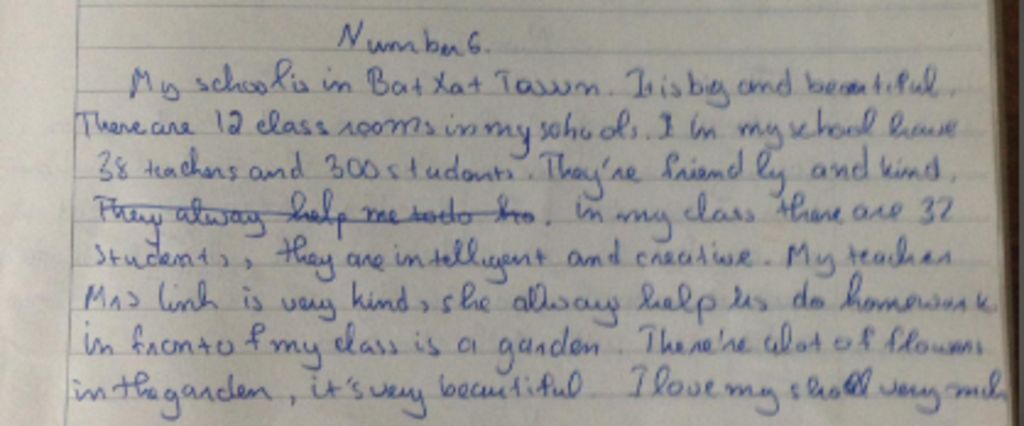 Number 6.
My school is in Bat Xat Town. It is big and beautiful.
There are 12 class rooms in my schools. I in my school have
38 teachers and 300 students. They're friendly and kind.
They alway help me to do. In my class there are 32
students, they are intelligent and creative. My teacher
Mrs Linh is very kind, she allway help us do homework
in front of my class is a garden. There're alot of flowers
in the garden, it's very beautiful. I love my sholl very much